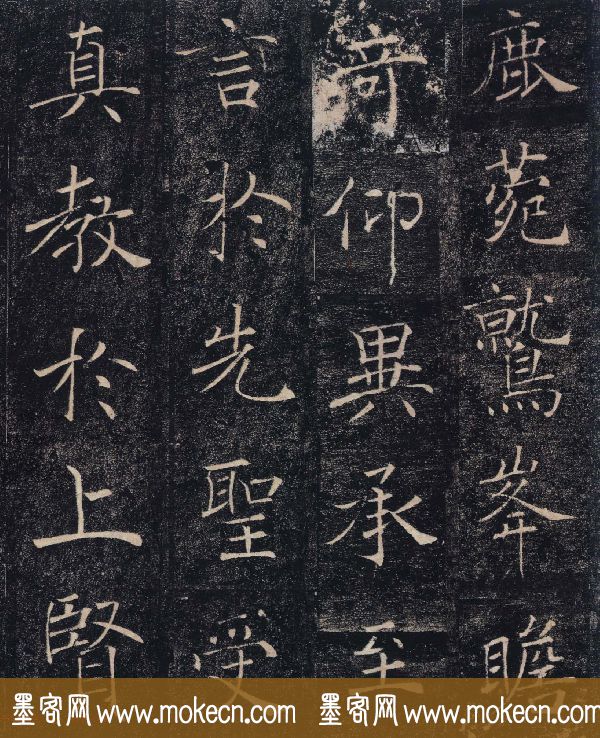 鹿菀鷲峯瞻
奇仰異承至
言於先聖受
真教於上賢
墨客网 www.mokecn.com 墨客网 www.mokecn.com